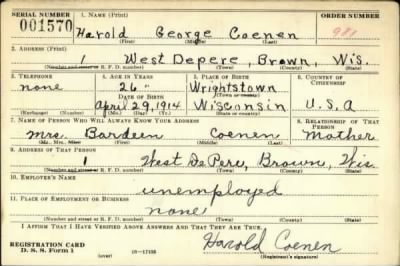 SERIAL NUMBER 1. NAME (Print) ORDER NUMBER
001570 Harold George Coenen 981
(First) (Middle) (Last)
2. ADDRESS (Print)
1 West Depere, Brown, Wis.
(Number and street or R. F. D. number) (Town) (County) (State)
3. TELEPHONE 4. AGE IN YEARS 5. PLACE OF BIRTH 6. COUNTRY OF CITIZENSHIP
none 26 Wrightstown
(Town or county)
DATE OF BIRTH
April 29, 1914 Wisconsin U.S.A
(Exchange) (Number) (Mo.) (Day) (Yr.) (State or country)
7. NAME OF PERSON WHO WILL ALWAYS KNOW YOUR ADDRESS 8. RELATIONSHIP OF THAT PERSON
Mrs. Bardeen Coenen Mother
(Mr., Mrs., Miss) (First) (Middle) (Last)
9. ADDRESS OF THAT PERSON
1 West DePere, Brown, Wis.
(Number and street or R. F. D. number) (Town) (County) (State)
10. EMPLOYER'S NAME
unemployed
11. PLACE OF EMPLOYMENT OR BUSINESS
none
(Number and street or R. F. D. number) (Town) (County) (State)
I AFFIRM THAT I HAVE VERIFIED ABOVE ANSWERS AND THAT THEY ARE TRUE.
Harold Coenen
REGISTRATION CARD
D. S. S. Form 1 (over) 16-17105 (Registrant's signature)